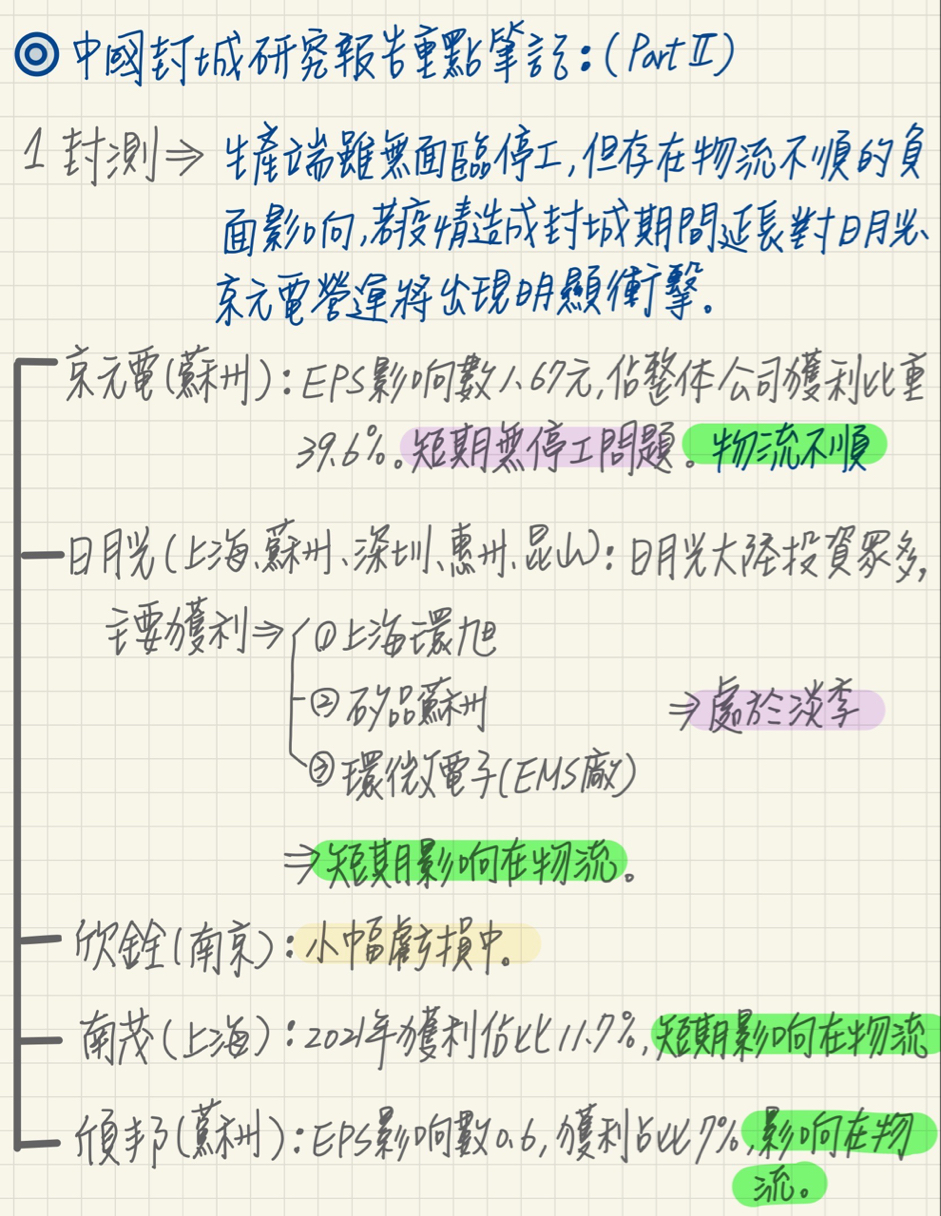 中國封城研究報告重點筆記:(Part II)
1 封測⇒ 生產端雖無面臨停工,但存在物流不順的負
面影响,若疫情造成封城期間延長對日月光、
京元電營運將出現明顯衝擊。
京元電(蘇州):EPS影响數1.67元,佔整体公司獲利比重
39.6%。短期無停工問題。物流不順
日月光(上海、蘇州、深圳、惠州、昆山):日月光大陸投資眾多,
主要獲利⇒ ①上海環旭
②矽品蘇州 ⇒處於淡季
③環微電子(EMS廠)
⇒短期影响在物流。
欣銓(南京):小幅虧損中。
南茂(上海):2021年獲利佔比11.7%,短期影响在物流
頎邦(蘇州):EPS影响數0.6,獲利占比7%,影响在物
流。